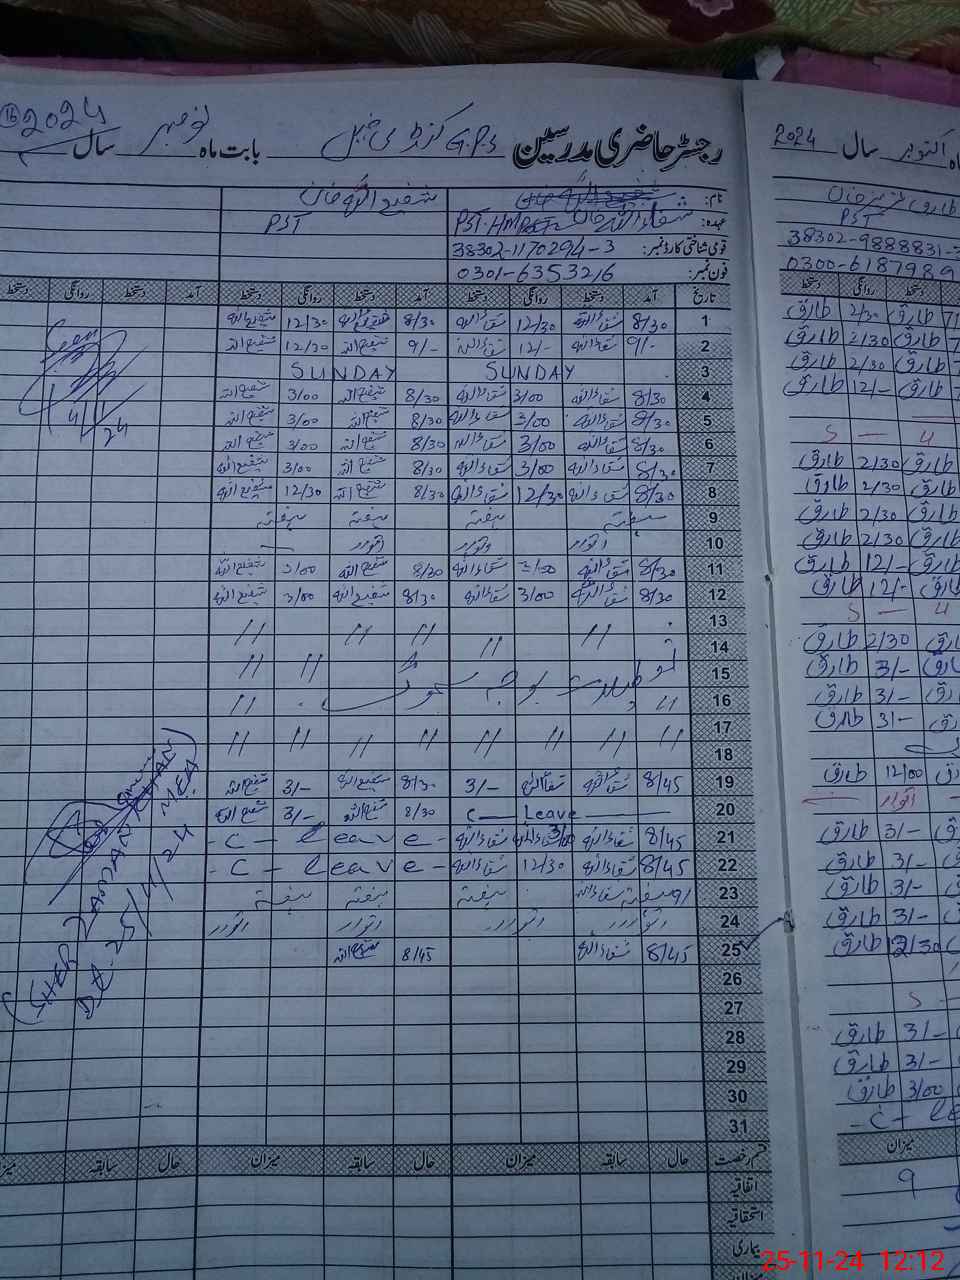 رجسٹر حاضری مدرسین G.P.S بابت ماہ نومبر سال 2024
نام: شفیع اللہ خان
عہدہ: PST-HM شفاء اللہ خان PST
قومی شناختی کارڈ نمبر: 38302-1170294-3
فون نمبر: 0301-6353216
تاریخ آمد دستخط روانگی دستخط آمد دستخط روانگی دستخط آمد دستخط روانگی دستخط
1 8/30 شفاء اللہ 12/30 شفاء اللہ 8/30 شفیع اللہ 12/30 شفیع اللہ
2 9/- شفاء اللہ 12/- شفاء اللہ 9/- شفیع اللہ 12/30 شفیع اللہ
3 SUNDAY SUNDAY
4 8/30 شفاء اللہ 3/00 شفاء اللہ 8/30 شفیع اللہ 3/00 شفیع اللہ
5 8/30 شفاء اللہ 3/00 شفاء اللہ 8/30 شفیع اللہ 3/00 شفیع اللہ
6 8/30 شفاء اللہ 3/00 شفاء اللہ 8/30 شفیع اللہ 3/00 شفیع اللہ
7 8/30 شفاء اللہ 3/00 شفاء اللہ 8/30 شفیع اللہ 3/00 شفیع اللہ
8 8/30 شفاء اللہ 12/30 شفاء اللہ 8/30 شفیع اللہ 12/30 شفیع اللہ
9 ہفتہ ہفتہ ہفتہ ہفتہ
10 اتوار اتوار اتوار
11 8/30 شفاء اللہ 3/00 شفاء اللہ 8/30 شفیع اللہ 3/00 شفیع اللہ
12 8/30 شفاء اللہ 3/00 شفاء اللہ 8/30 شفیع اللہ 3/00 شفیع اللہ
13 // // // //
14 //
15 تعطیلات بوجہ سموگ // //
16 // //
17
18 // // // // // // // //
19 8/45 شفاء اللہ شفاء اللہ 3/- 8/30 شفیع اللہ 3/- شفیع اللہ
20 C — Leave 8/30 شفیع اللہ 3/- شفیع اللہ
21 8/45 شفاء اللہ 3/00 شفاء اللہ - C - leave -
22 8/45 شفاء اللہ 12/30 شفاء اللہ - C - leave -
23 ہفتہ ہفتہ ہفتہ ہفتہ
24 اتوار اتوار اتوار اتوار
25 8/45 شفاء اللہ 8/45 شفیع اللہ
26
27
28
29
30
31
قسم رخصت حال سابقہ میزان حال سابقہ میزان حال سابقہ میزان
اتفاقیہ
استحقاقیہ
بیماری
4/11/24
MEA
25/11/24
ماہ اکتوبر سال 2024
طارق خان
PST
38302-9888831-
0300-6187989
روانگی دستخط
2/30 طارق
2/30 طارق
2/30 طارق
12/- طارق
S — u
2/30 طارق
2/30 طارق
2/30 طارق
2/30 طارق
12/- طارق
12/- طارق
S — u
2/30 طارق
3/- طارق
3/- طارق
3/- طارق
12/00 طارق
اتوار
3/- طارق
3/- طارق
3/- طارق
3/- طارق
12/30 طارق
S -
3/- طارق
3/- طارق
3/00 طارق
- C - le
میزان
9
25-11-24 12:12